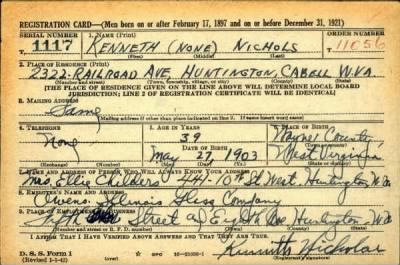 REGISTRATION CARD—(Men born on or after February 17, 1897 and on or before December 31, 1921)
SERIAL NUMBER 1. NAME (Print) ORDER NUMBER
T 1117 KENNETH (NONE) NICHOLS 11056
(First) (Middle) (Last)
2. PLACE OF RESIDENCE (Print)
2322-RAILROAD AVE HUNTINGTON, CABELL W.VA.
(Number and street) (Town, township, village, or city) (County) (State)
[THE PLACE OF RESIDENCE GIVEN ON THE LINE ABOVE WILL DETERMINE LOCAL BOARD
JURISDICTION; LINE 2 OF REGISTRATION CERTIFICATE WILL BE IDENTICAL]
3. MAILING ADDRESS
Same
[Mailing address if other than place indicated on line 2. If same insert word same]
4. TELEPHONE 5. AGE IN YEARS 6. PLACE OF BIRTH
None 39 Wayne County
DATE OF BIRTH (Town or county)
May 27 1903 West Virginia
(Exchange) (Number) (Mo.) (Day) (Yr.) (State or country)
7. NAME AND ADDRESS OF PERSON WHO WILL ALWAYS KNOW YOUR ADDRESS
Mrs Childers 441-10th St West. Huntington W Va
8. EMPLOYER'S NAME AND ADDRESS
Owens Illinois Glass Company
9. PLACE OF EMPLOYMENT OR BUSINESS
Street and Eighth Ave Huntington W Va
(Number and street or R. F. D. number) (Town) (County) (State)
I AFFIRM THAT I HAVE VERIFIED ABOVE ANSWERS AND THAT THEY ARE TRUE.
D. S. S. Form 1
(Revised 1-1-42) GPO Kenneth Nichols